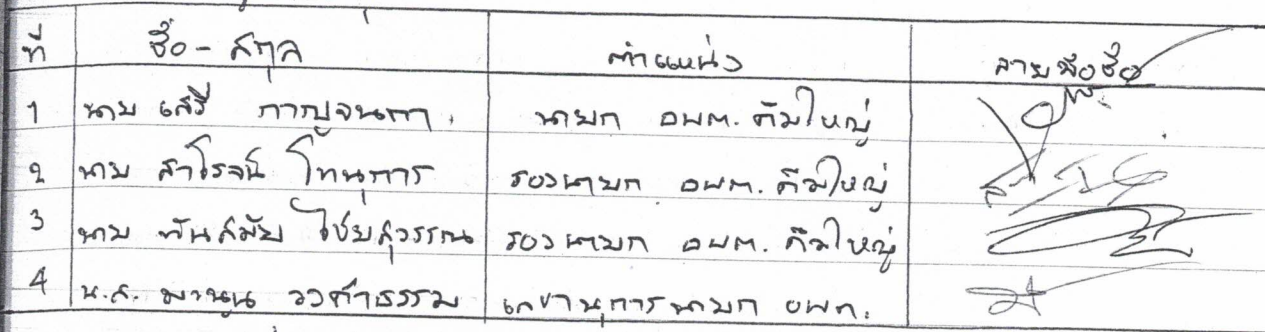 ที่ ชื่อ - สกุล ตำแหน่ง ลายมือชื่อ
1 นาย เสรี กาญจนดา นายก อบต. คึมใหญ่
2 นาย สาโรจน์ โทนุการ รองนายก อบต. คึมใหญ่
3 นาย พันสมัย ไชยสุวรรณ รองนายก อบต. คึมใหญ่
4 น.ส. วงค์ธรรม เลขานุการนายก อบต.